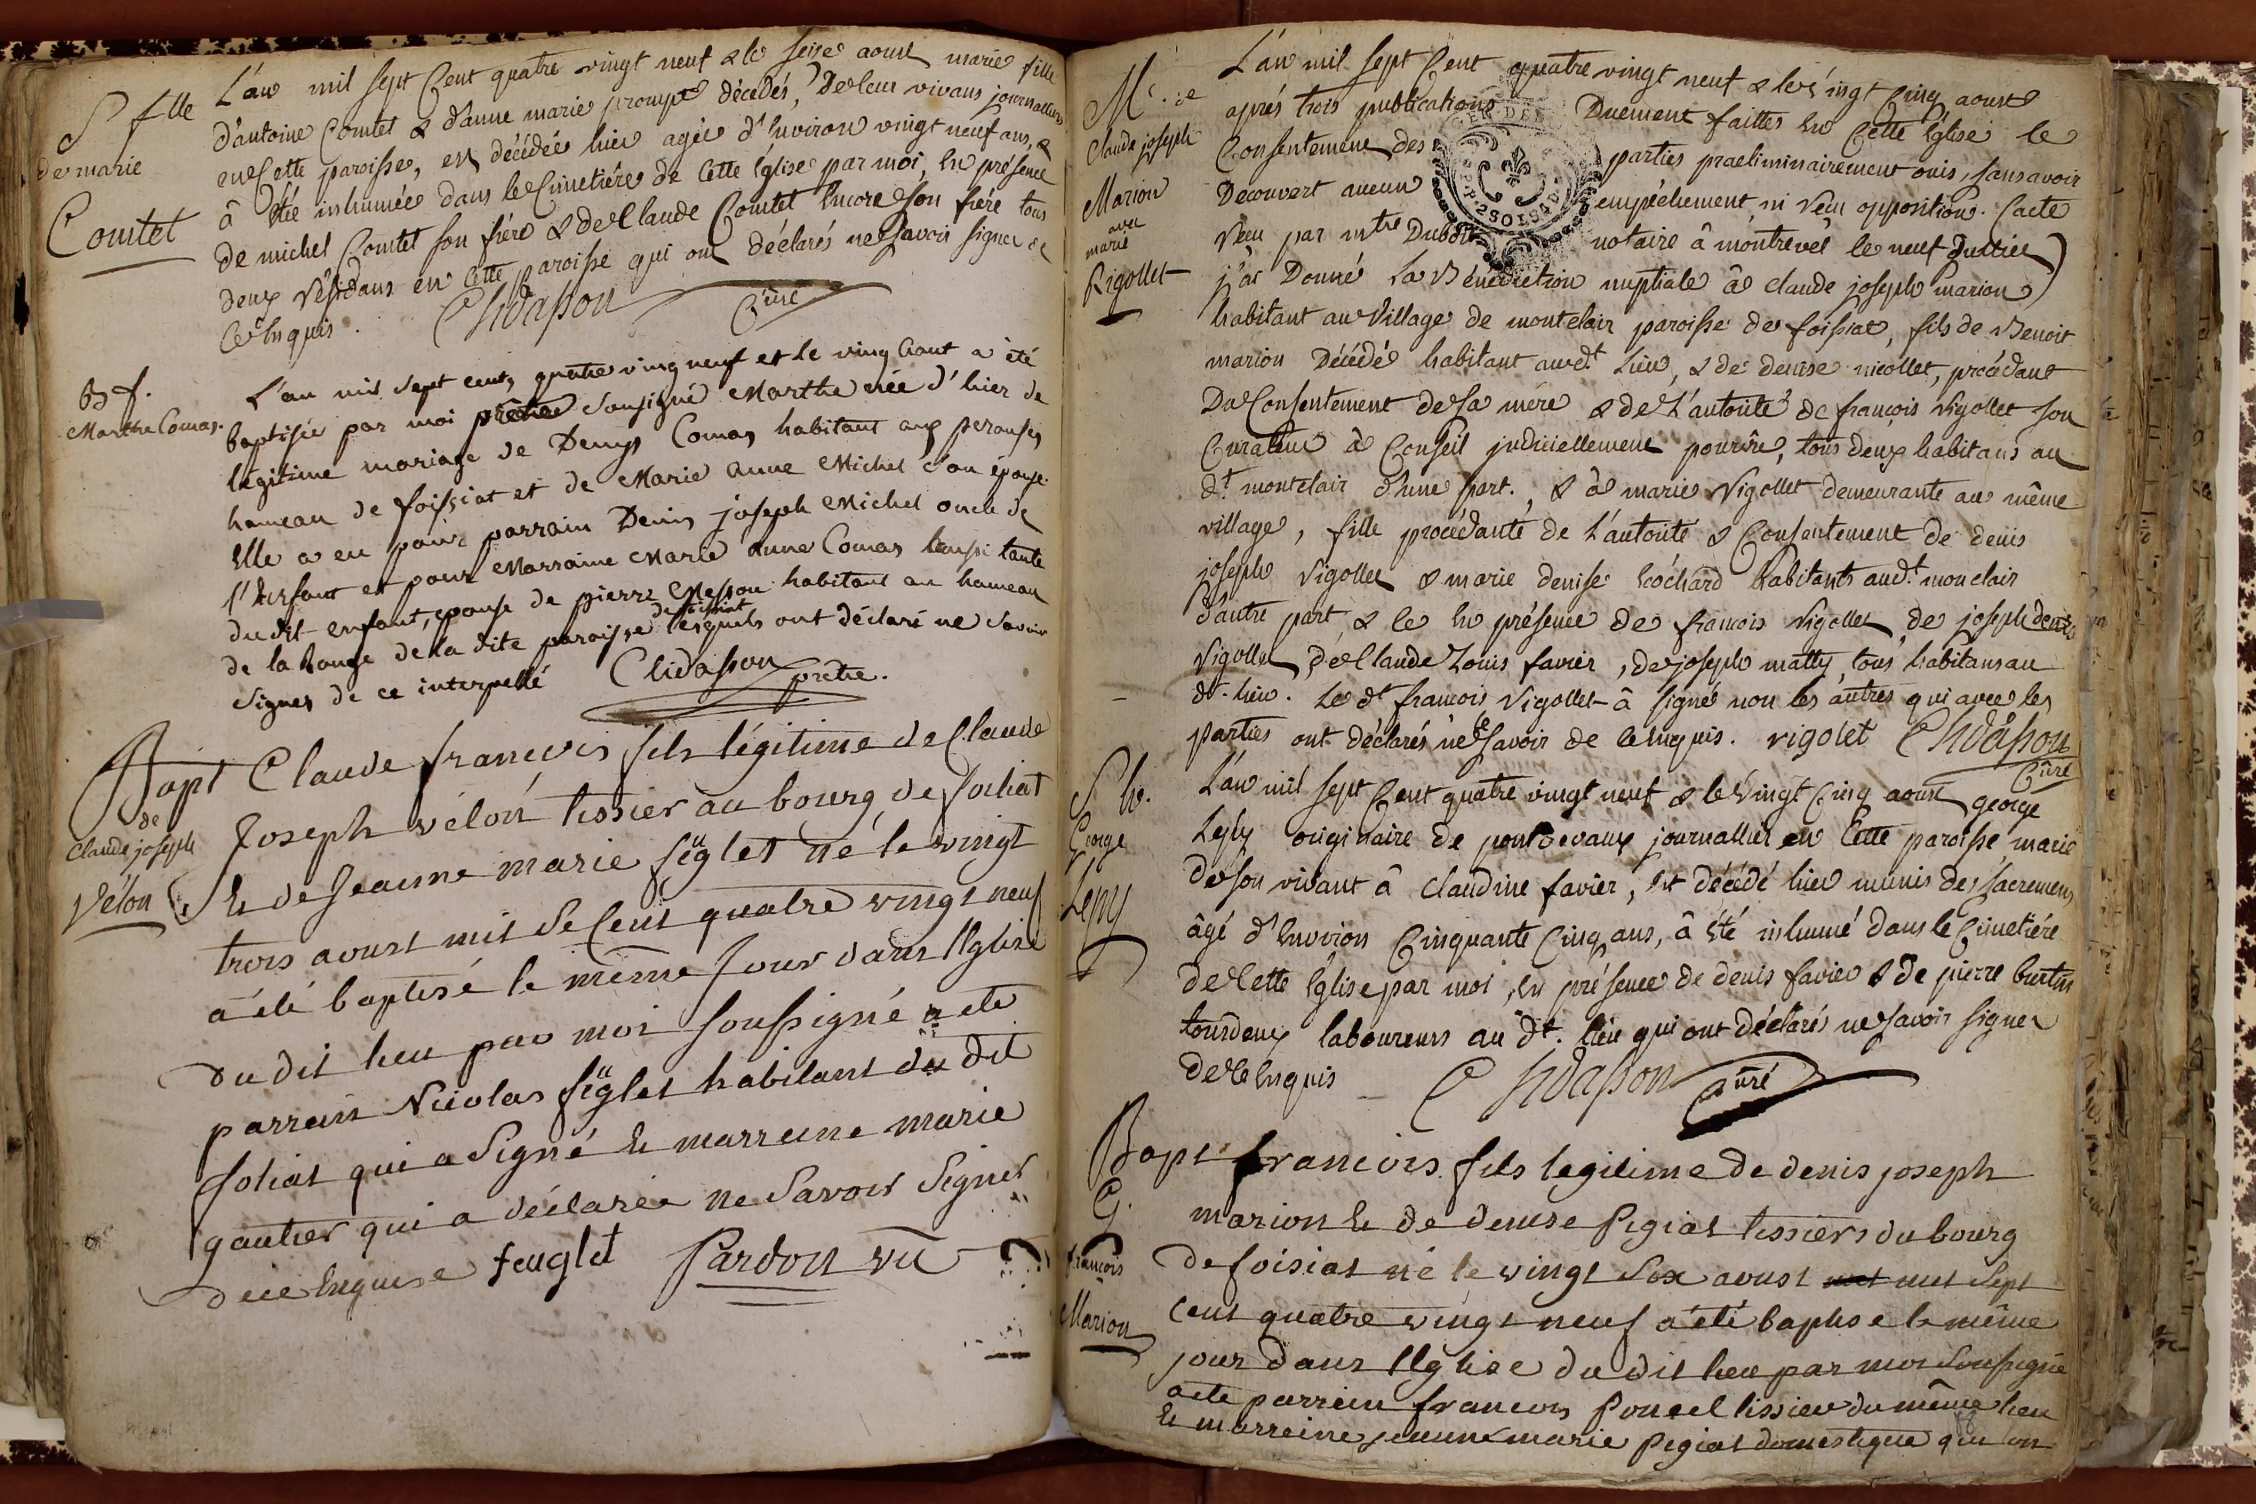 S fille
de marie
Comtet
L'an mil sept Cent quatre vingt neuf & le seise aoust marie fille
d'antoine Comtet & d'anne marie prompt décédés, de leur vivans journaliers
en Cette paroisse, est décédée hier agée d'Environ vingt neuf ans, &
â Eté inhumée dans le Cimetiére de Cette Eglise par moi, En présence
de michel Comtet son frére & de Claude Comtet Encore son frére tous
deux résidans en Cette paroisse qui ont déclarés ne savoir signer de
Ce Enquis. Chidasson Curé
B f.
Marthe Comas.
L'an mil sept cents quatre ving neuf et le ving haut a été
baptisée par moi prêtre sousigné Marthe née d'hier de
légitime mariage de Denys Comas habitant aux perouses
hameau de foissiat et de Marie Anne Michel son épouse.
Elle a eu pour parrain Denis joseph Michel oncle de
l'Enfant et pour Marraine Marie Anne Comas aussi tante
du dit enfant, epouse de pierre Messon habitant au hameau
de la de la dite paroisse de foissiat lesquels ont déclaré ne savoir
signer de ce interpellé Chidasson prêtre.
Bapt
de
Claude joseph
Vélon
Claude francois fils légitime de Claude
Joseph vélon tissier au bourg de foisiat
Et de Jeanne marie feüglet né le vingt
trois aoust mil se Cent quatre vingt neuf
a été baptisé le même Jour dans l'Eglise
du dit lieu par moi soussigné a ete
parrain Nicolas feüglet habitant du dit
foisiat qui a Signé Et marraine marie
gautier qui a déclarée ne savoir Signer
de ce Enquise feuglet Pardon vic
M.ge
Claude joseph
Marion
avec
marie
Rigollet
L'an mil sept Cent quatre vingt neuf & le vingt Cinq aoust
aprés trois publications Duement faittes En Cette Eglise le
Consentement des parties praeliminairement ouis, sans avoir
Découvert aucun empéchement ni reçu opposition. L'acte
reçu par mtre Dubost notaire â montrevel le neuf Juillet
j'ai Donné la Bénédiction nuptiale â claude joseph marion
habitant au Village de montclair paroisse de foissiat, fils de Benoit
marion Décédé habitant audt. Lieu, & de denise nicollet, procédant
Du Consentement de sa mére & de L'autorité de françois Rigollet son
Curateur â Conseil judiciellement pourvue, tous deux habitans au
dt. montclair d'une part. & â marie Rigollet demeurante au même
village, fille procédante de L'autorité & Consentement de denis
joseph Rigollet & marie denise Cochard habitants audt. monclair
d'autre part & le En présence de francois Rigollet, de joseph denis
Rigollet, de Claude Louis favier, de joseph matty, tous habitans au
dt. lieu. Le dt francois Rigollet â signé non les autres qui avec les
parties ont déclarés ne le savoir de ce Enquis. rigolet Chidasson
Curé
S h.
George
Lepy
L'an mil sept Cent quatre vingt neuf & le vingt Cinq aoust george
Lepy originaire de pontdevaux journallier en Cette paroisse marié
de son vivant â claudine favier, est décédé hier munis des sacremens
âgé d'Environ Cinquante Cinq ans, â Eté inhumé dans le Cimetiére
de Cette Eglise par moi, En présence de denis favier & de pierre burtin
tous deux laboureurs au dt. lieu qui ont déclarés ne savoir signer
de Ce Enquis Chidasson Curé
Bapt
G.
francois
Marion
francois fils legitime de denis joseph
marion Et de denise Pigiat tissiers du bourg
de foisiat né le vingt Six aoust mil Sept
Cent quatre vingt neuf a été baptise le même
jour dans l'Eglise du dit lieu par moi soussigné
a ete parrain francois Poncet tissier du même lieu
Et marreine jeanne marie Pigiat domestique qui ont